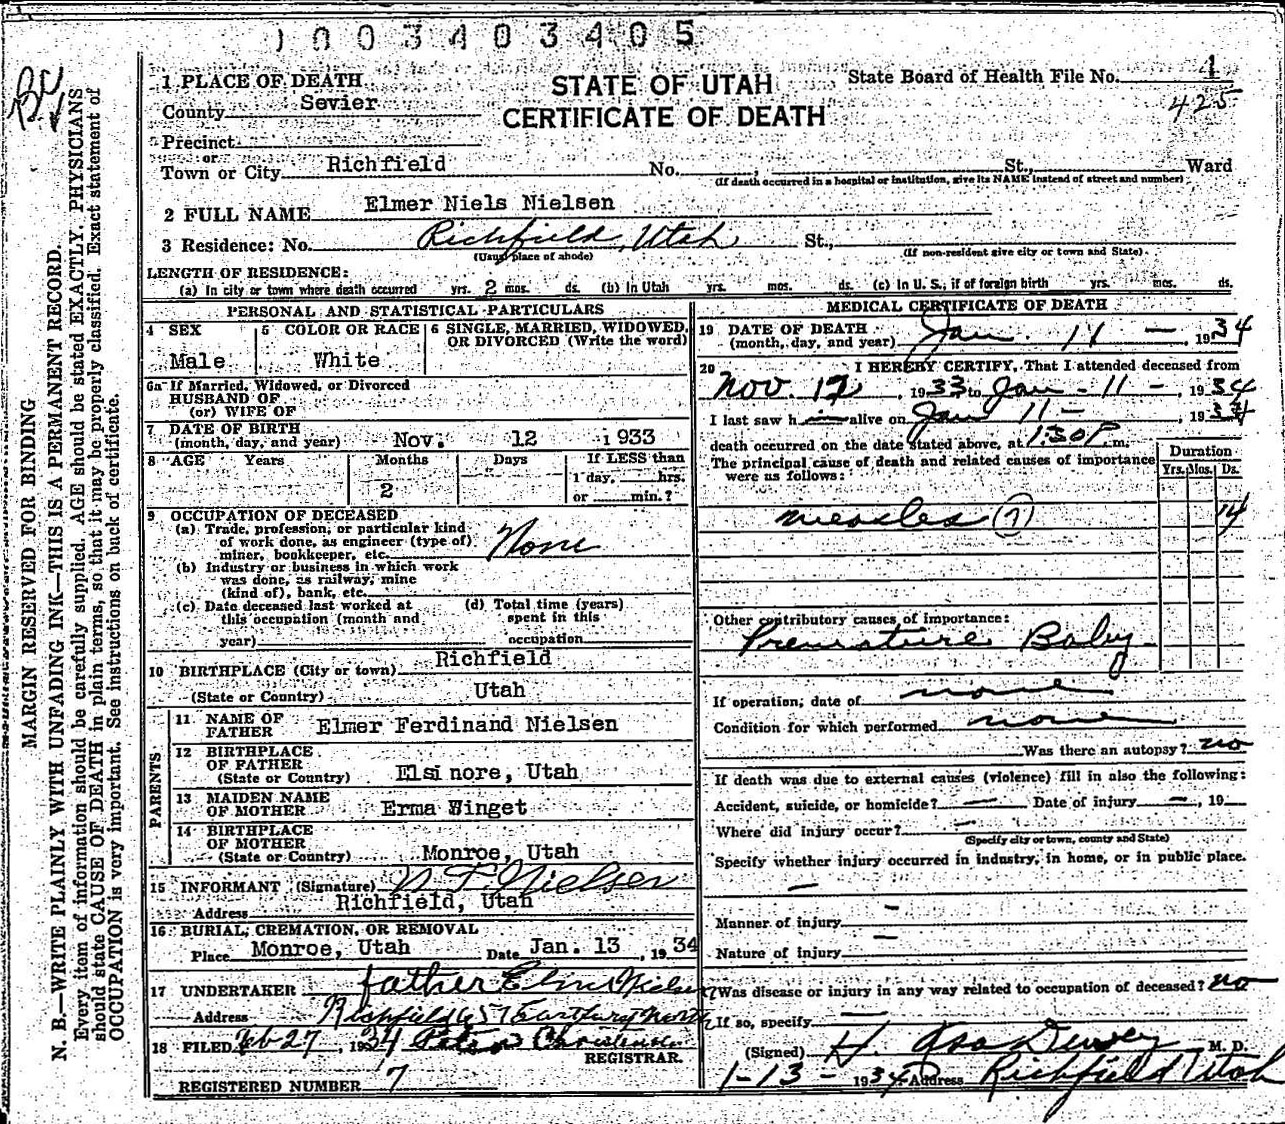 1003403405
1 PLACE OF DEATH
STATE OF UTAH
CERTIFICATE OF DEATH
State Board of Health File No. 1
425
County Sevier
Precinct
or
Town or City Richfield No. , St., Ward
(If death occurred in a hospital or institution, give its NAME instead of street and number)
2 FULL NAME Elmer Niels Nielsen
3 Residence: No. Richfield, Utah St.,
(Usual place of abode) (If non-resident give city or town and State)
LENGTH OF RESIDENCE:
(a) In city or town where death occurred yrs. 2 mos. ds. (b) In Utah yrs. mos. ds. (c) In U. S., if of foreign birth yrs. mos. ds.
PERSONAL AND STATISTICAL PARTICULARS
4 SEX Male
5 COLOR OR RACE White
6 SINGLE, MARRIED, WIDOWED, OR DIVORCED (Write the word)
6a If Married, Widowed, or Divorced
HUSBAND OF
(or) WIFE OF
7 DATE OF BIRTH
(month, day, and year) Nov. 12 1933
8 AGE Years Months Days If LESS than
1 day, hrs.
2
or min.?
9 OCCUPATION OF DECEASED
(a) Trade, profession, or particular kind
of work done, as engineer (type of)
miner, bookkeeper, etc. None
(b) Industry or business in which work
was done, as railway, mine
(kind of), bank, etc.
(c) Date deceased last worked at
this occupation (month and
year)
(d) Total time (years)
spent in this
occupation
10 BIRTHPLACE (City or town) Richfield
(State or Country) Utah
PARENTS
11 NAME OF
FATHER Elmer Ferdinand Nielsen
12 BIRTHPLACE
OF FATHER
(State or Country) Elsinore, Utah
13 MAIDEN NAME
OF MOTHER Erma Winget
14 BIRTHPLACE
OF MOTHER
(State or Country) Monroe, Utah
15 INFORMANT (Signature) N F. Nielsen
Address Richfield, Utah
16 BURIAL, CREMATION, OR REMOVAL
Place Monroe, Utah Date Jan. 13, 1934
17 UNDERTAKER father Elmer Nielsen
Address Richfield
18 FILED Feb 27, 1934 Peter Christensen
REGISTRAR.
REGISTERED NUMBER 7
MEDICAL CERTIFICATE OF DEATH
19 DATE OF DEATH
(month, day, and year) Jan. 11 — , 1934
20 I HEREBY CERTIFY, That I attended deceased from
Nov. 12, 1933 to Jan - 11 - , 1934
I last saw him alive on Jan 11 - , 1934
death occurred on the date stated above, at 1:30 P. m.
The principal cause of death and related causes of importance
were as follows:
Duration
Yrs. Mos. Ds.
measles (7) 14
Other contributory causes of importance:
Premature Baby
If operation, date of none
Condition for which performed none
Was there an autopsy? no
If death was due to external causes (violence) fill in also the following:
Accident, suicide, or homicide? — Date of injury — , 19
Where did injury occur? —
(Specify city or town, county and State)
Specify whether injury occurred in industry, in home, or in public place.
—
Manner of injury —
Nature of injury —
Was disease or injury in any way related to occupation of deceased? no
If so, specify —
(Signed) H. Asa Dewey M. D.
1-13- 1934 Address Richfield Utah
MARGIN RESERVED FOR BINDING
N. B.—WRITE PLAINLY WITH UNFADING INK—THIS IS A PERMANENT RECORD.
Every item of information should be carefully supplied. AGE should be stated EXACTLY. PHYSICIANS
should state CAUSE OF DEATH in plain terms, so that it may be properly classified. Exact statement of
OCCUPATION is very important. See instructions on back of certificate.